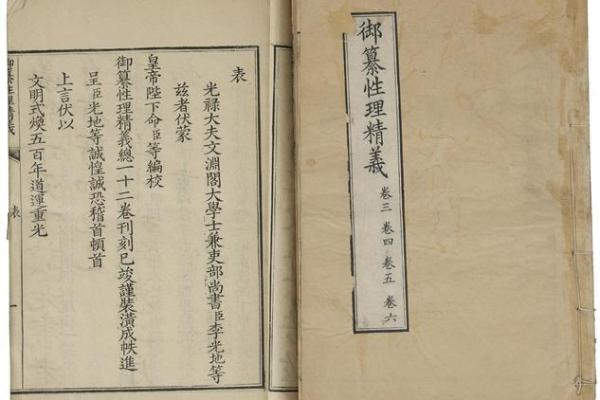 御纂性理精義
卷三 卷四 卷五 卷六
表
光祿大夫文淵閣大學士兼吏部尚書臣李光地等
茲者伏蒙
皇帝陛下命臣等編校
御纂性理精義總一十二卷刊刻已竣謹裝潢成帙進
呈臣光地等誠惶誠恐稽首頓首
上言伏以
文明式煥五百年道運重光
御纂性理精義
表
一